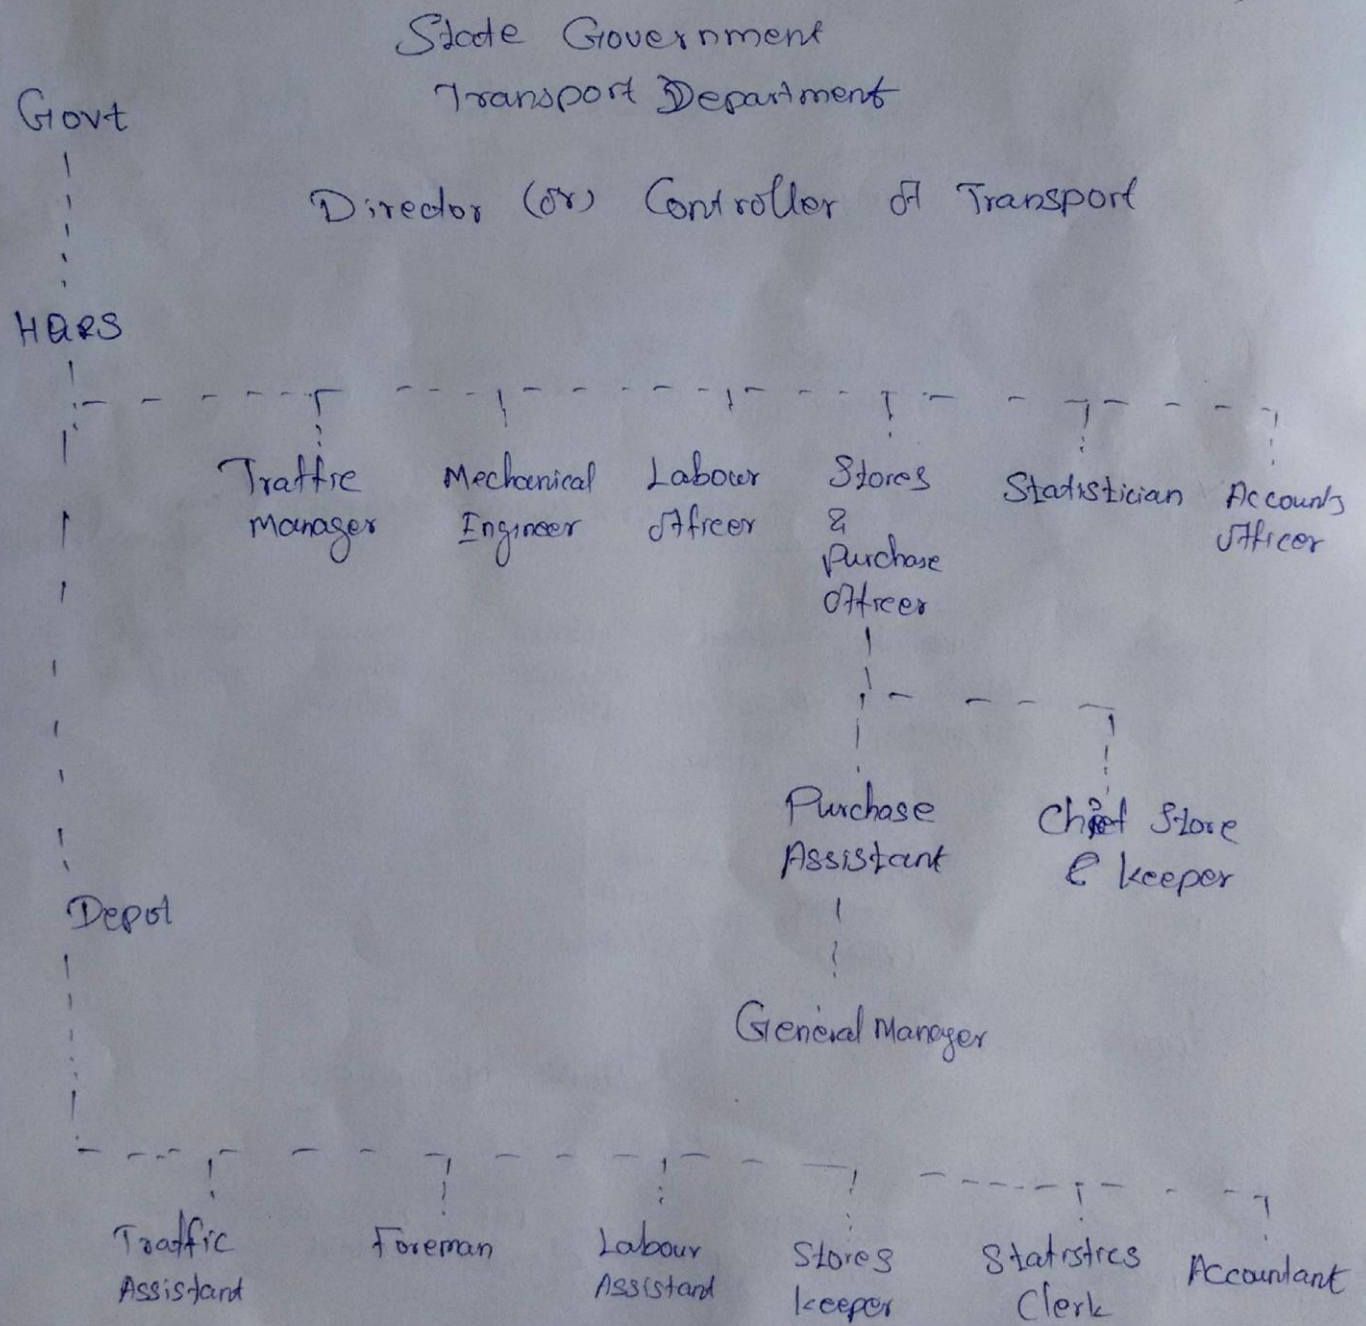 State Government
Transport Department
Govt
Director (or) Controller of Transport
HQRS
Traffic
Manager
Mechanical
Engineer
Labour
Officer
Stores
&
Purchase
Officer
Statistician
Accounts
Officer
Purchase
Assistant
Chief Store
keeper
Depot
General Manager
Traffic
Assistant
Foreman
Labour
Assistant
Stores
keeper
Statistics
Clerk
Accountant